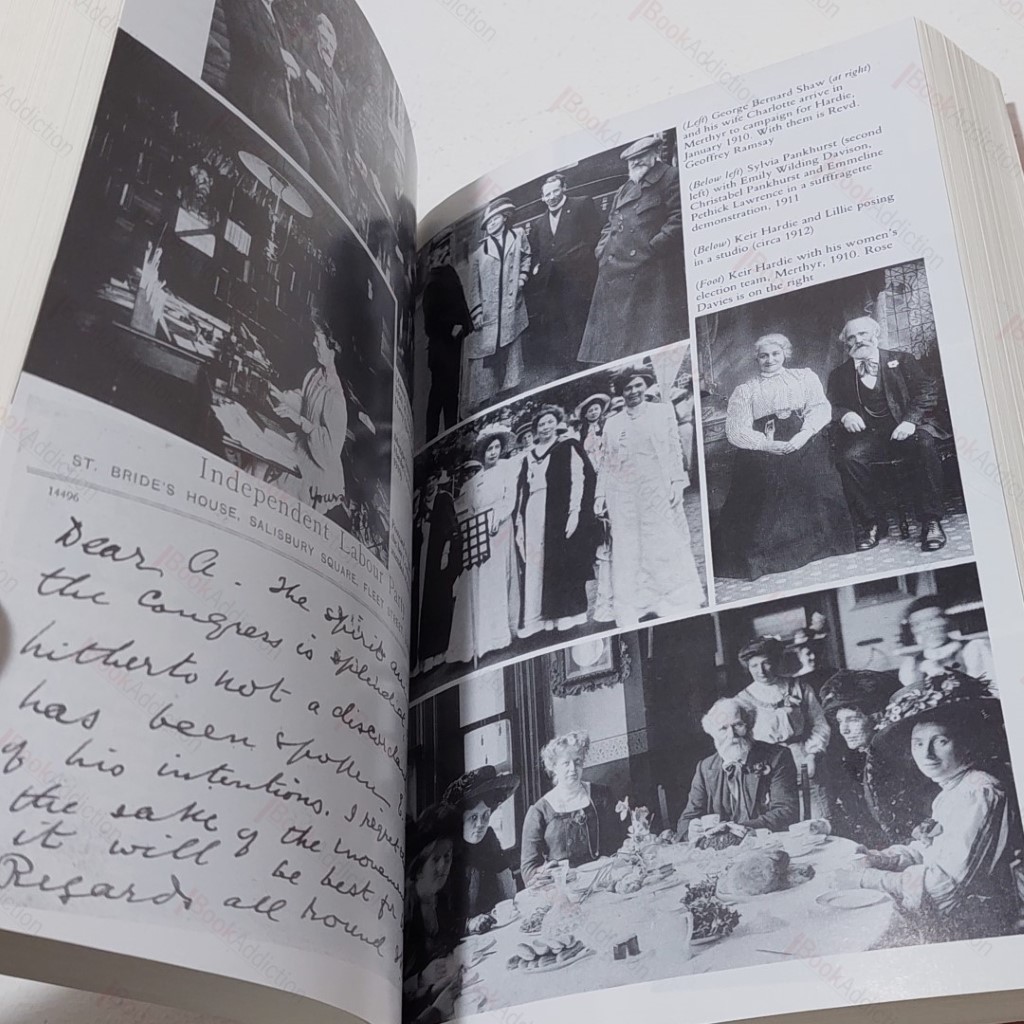 Yours
Independent Labour Party
ST. BRIDE'S HOUSE, SALISBURY SQUARE, FLEET STREET
14496
Dear A. The spirit
the Congress is splendid
hitherto not a discordant
has been spoken
of his intentions. I
the sake of the movement
it will be best for
Regards all round
(Left) George Bernard Shaw (at right)
and his wife Charlotte arrive in
Merthyr to campaign for Hardie,
January 1910. With them is Revd.
Geoffrey Ramsay
(Below left) Sylvia Pankhurst (second
left) with Emily Wilding Davison,
Christabel Pankhurst and Emmeline
Pethick Lawrence in a suffragette
demonstration, 1911
(Below) Keir Hardie and Lillie posing
in a studio (circa 1912)
(Foot) Keir Hardie with his women's
election team, Merthyr, 1910. Rose
Davies is on the right
BookAddiction